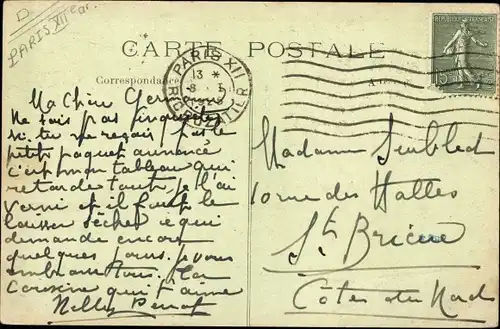 D
PARIS XII ear.
CARTE POSTALE
Correspondance
PARIS XII
13 *
8 - 3
R. CROZATIER
REPUBLIQUE FRANÇAISE
15
Ma Chère
Ne fais pas
si tu ne reçois pas le
petit paquet annoncé
c'est mon tableau qui
retarde tout je l'ai
verni et il faut le
laisser sécher ce qui
demande encore
quelques jours. je vous
embrasse tous. Ma
Cousine qui t'aime
Nelly
Madame
10 rue des Halles
St Brieuc
Côtes du Nord